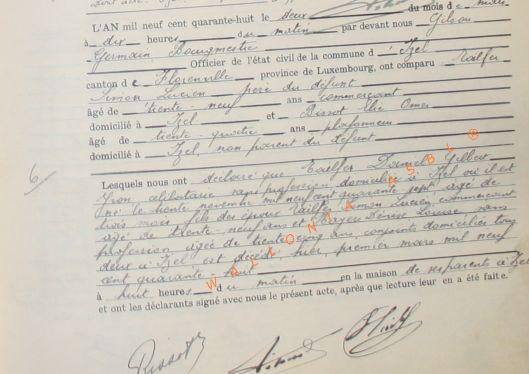 L'AN mil neuf cent quarante-huit le deux du mois de mars
à dix heures du matin par devant nous Gilson
Germain Bourgmestre
Officier de l'état civil de la commune d' Izel
canton de Florenville province de Luxembourg, ont comparu
Simon Lucien père du défunt
âgé de trente-neuf ans commerçant
domicilié à Izel et Omer
âgé de trente-quatre ans plafonneur
domicilié à Izel, non parent du défunt
6
Lesquels nous ont déclaré que Daniel Gilbert
Yvon célibataire sans profession domicilié à Izel où il est
né le trente novembre mil neuf cent quarante sept âgé de
trois mois fils des époux Simon Lucien commerçant
âgé de trente-neuf ans et Denise Louise sans
profession âgée de trente cinq ans, conjoints domiciliés tous
deux à Izel est décédé hier, premier mars mil neuf
cent quarante huit
à huit heures du matin en la maison de ses parents à Izel
et ont les déclarants signé avec nous le présent acte, après que lecture leur en a été faite.